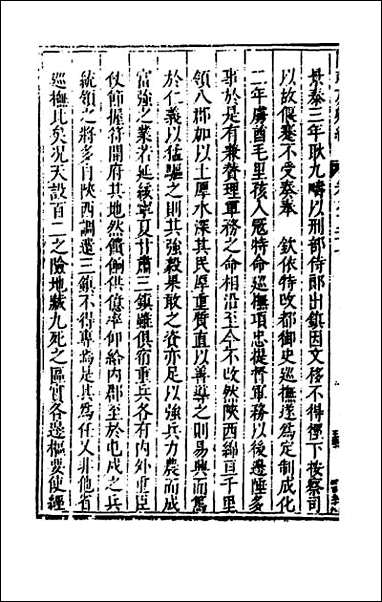 景泰三年耿九疇以刑部侍郎出鎮因文移不得徑下按察司
以故偃蹇不受奏奉　欽依特改都御史巡撫遂為定制成化
二年虜酋毛里孩入寇特命巡撫項忠提督軍務以後邊陲多
事於是有兼贊理軍務之命相沿至今不改然陝西綿亘千里
領八郡加以土厚水深其民厚重質直以善導之則易興而篤
於仁義以猛驅之則其強毅果敢之資亦足以強兵力農而成
富強之業若延綏寧夏甘肅三鎮雖俱宿重兵各有內外重臣
仗鉞握符開府其地然儹餉供億率仰給內郡至於屯戍之兵
統領之將多自陝西調遣三鎮不得專焉是其為任又非他省
巡撫比矣况天設百二之險地藏九死之區實各邊樞要使經